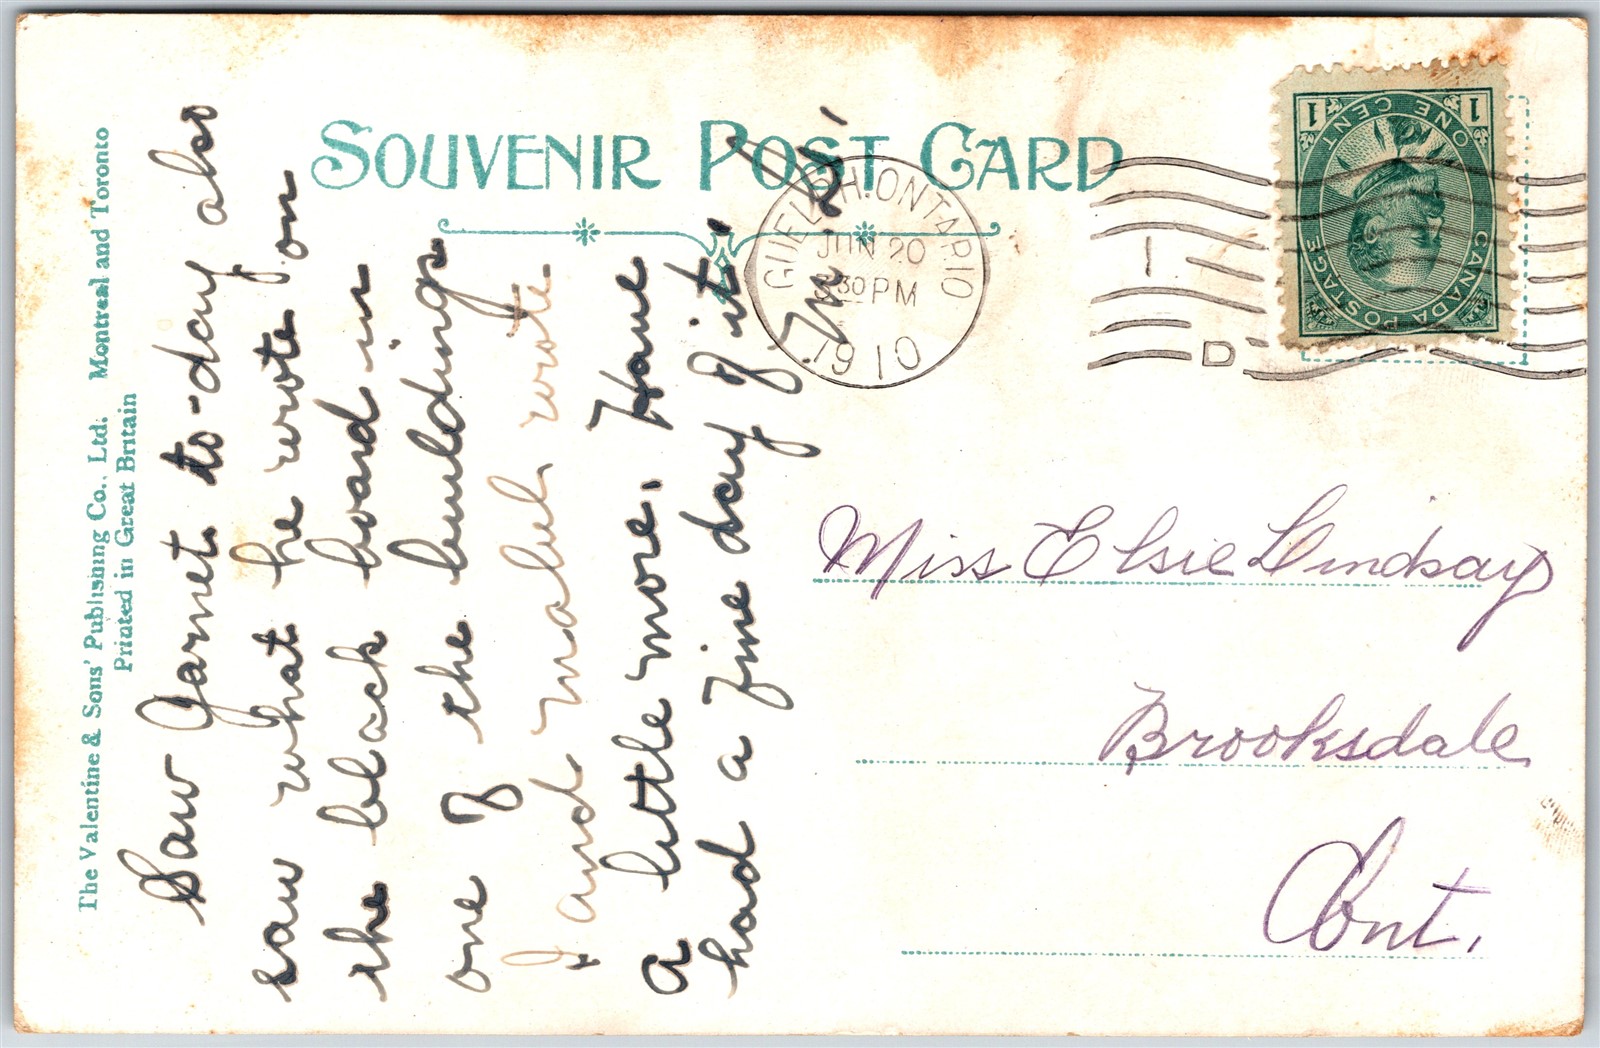 SOUVENIR POST CARD
The Valentine & Sons' Publishing Co., Ltd. Montreal and Toronto
Printed in Great Britain
GUELPH. ONTARIO
JUN 20
3 30 PM
1910
D
1 ONE CENT 1
CANADA POSTAGE
Saw Garnet to-day also
saw what he wrote on
the black board in
one of the buildings
I and Mabel wrote
a little more. Have
had a fine day of it.
Miss Elsie Lindsay
Brooksdale
Ont.